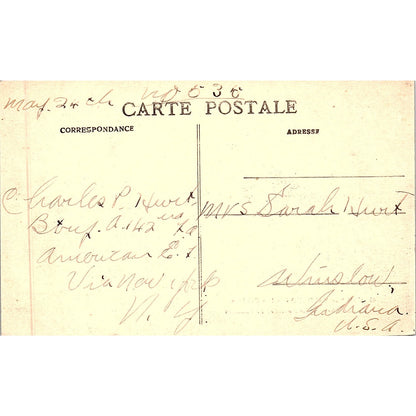 May. 24th no 536
CARTE POSTALE
CORRESPONDANCE
ADRESSE
Charles P. Hurt
A. 142
American E. F.
Via New york
N. Y
Mrs Sarah Hurt
Winslow
Indiana
U.S.A.